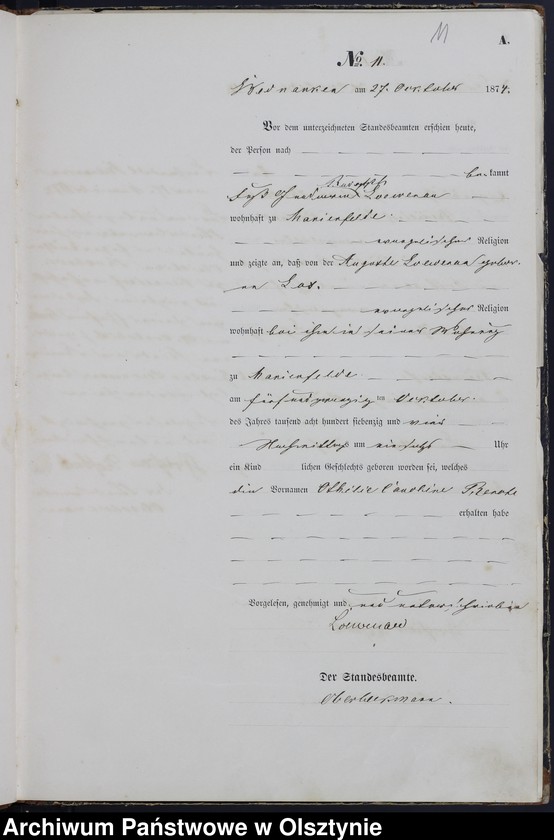 11
A.
No. 11.
am 27. October 1874.
Vor dem unterzeichneten Standesbeamten erschien heute,
der Person nach
bekannt
Loewenau
wohnhaft zu Marienfelde
evangelischer Religion
und zeigte an, daß von der Auguste Loewenau gebor-
evangelischer Religion
wohnhaft bei ihm in seiner Wohnung
zu Marienfelde
am fünfundzwanzigten October
des Jahres tausend acht hundert siebenzig und vier
Nachmittags um Uhr
ein Kind lichen Geschlechts geboren worden sei, welches
die Vornamen Othilie Caroline
erhalten habe
Vorgelesen, genehmigt und unterschrieben
Loewenau
Der Standesbeamte.
Archiwum Państwowe w Olsztynie